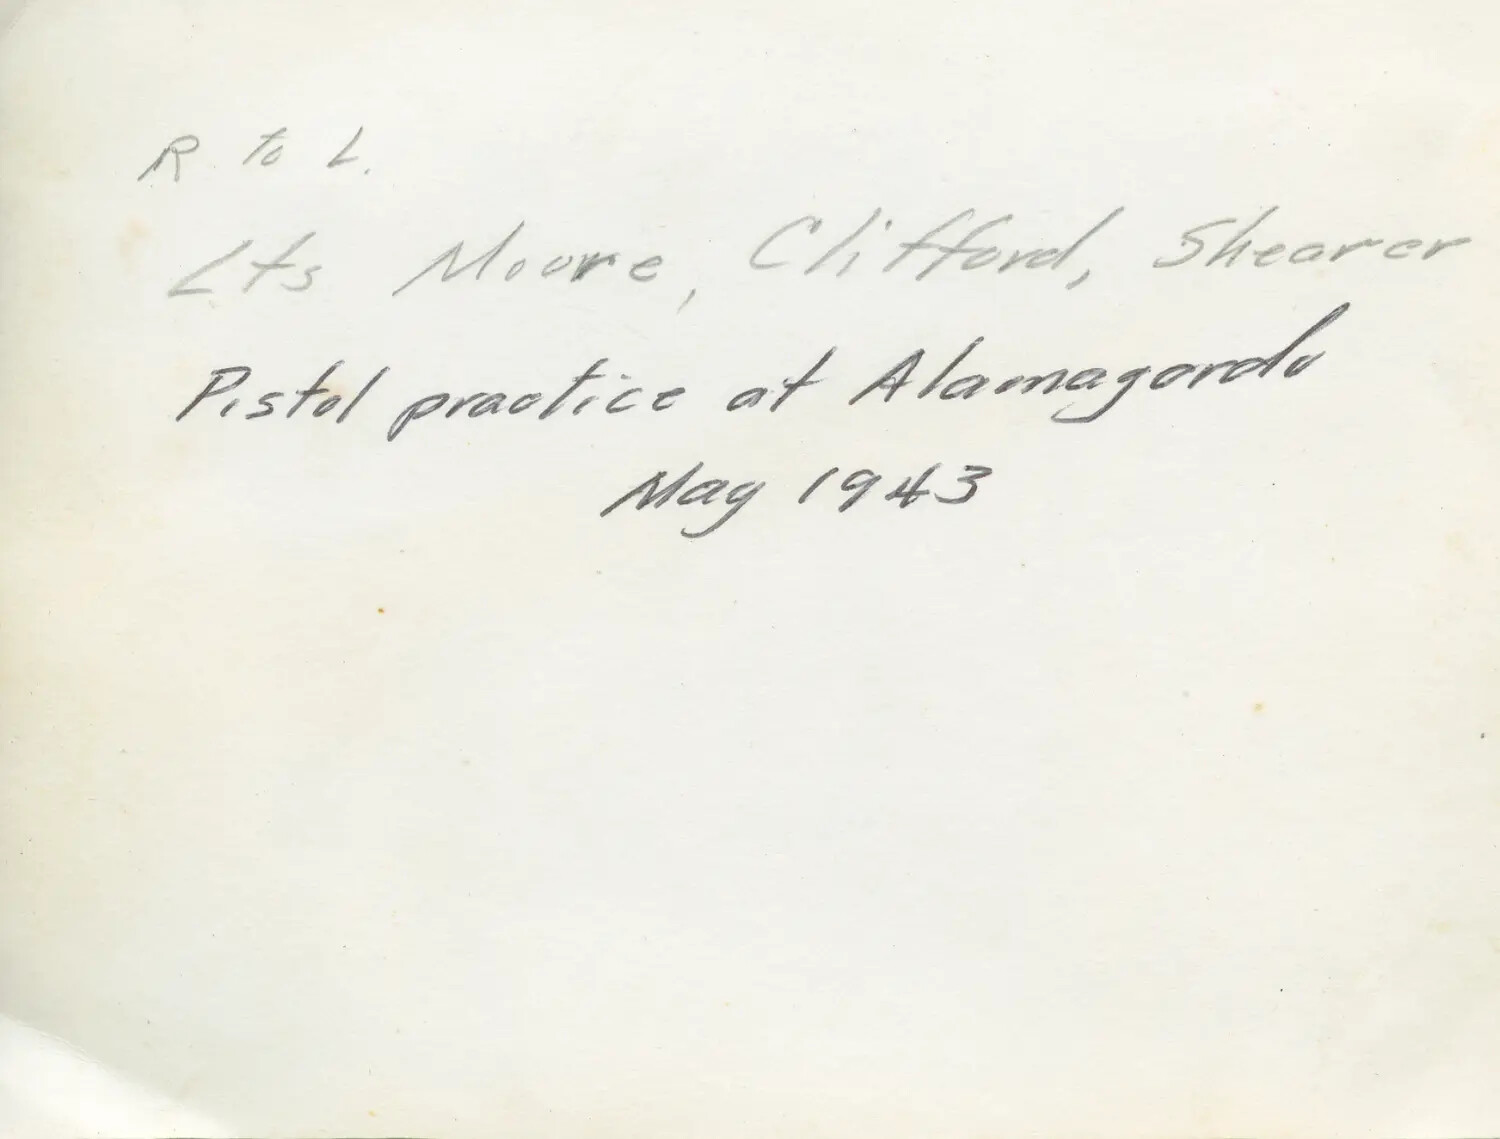 R to L.
Lts Moore, Clifford, Shearer
Pistol practice at Alamagordo
May 1943